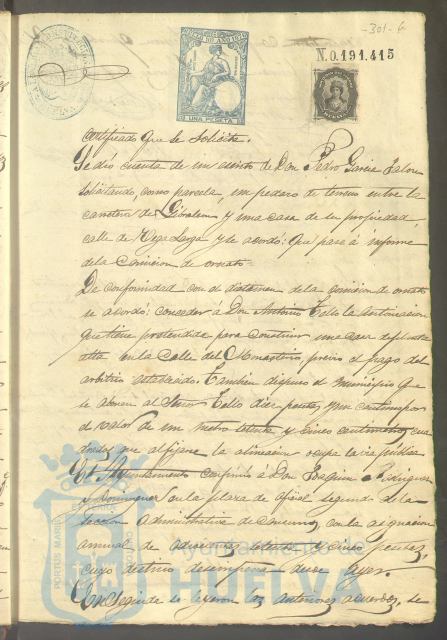 -301-
N.0.191.415
UNA PESETA
certificado que se solicita.
Se dió cuenta de un escrito de Don Pedro Garcia Jalon
solicitando, como parcela, un pedazo de terreno entre la
carretera de Gibraleon y una casa de su propiedad
calle de Vega Larga y se acordó: Que pase á informe
de la Comision de ornato.
De conformidad con el dictamen de la comision de ornato
se acordó: Conceder á Don Antonio Tello la autorizacion
que tiene pretendida para construir una casa de planta
alta en la Calle del Monasterio, previo el pago del
arbitrio establecido. Tambien dispuso el Municipio que
se abonen al Señor Tello diez pesetas
el valor de un metro setenta y cinco centimetros cua
drados que al fijarse la alineacion ocupa la via publica
El Ayuntamiento confirió á Don Joaquin Rodriguez
y Dominguez en la plaza de oficial segundo de la
seccion administrativa de Consumos, con la asignacion
annual de setenta y cinco pesetas,
cuyo destino desempeña desde ayer.
En seguida se leyeron los anteriores acuerdos, se
Ayuntamiento de
HUELVA
PORTUS MARIS